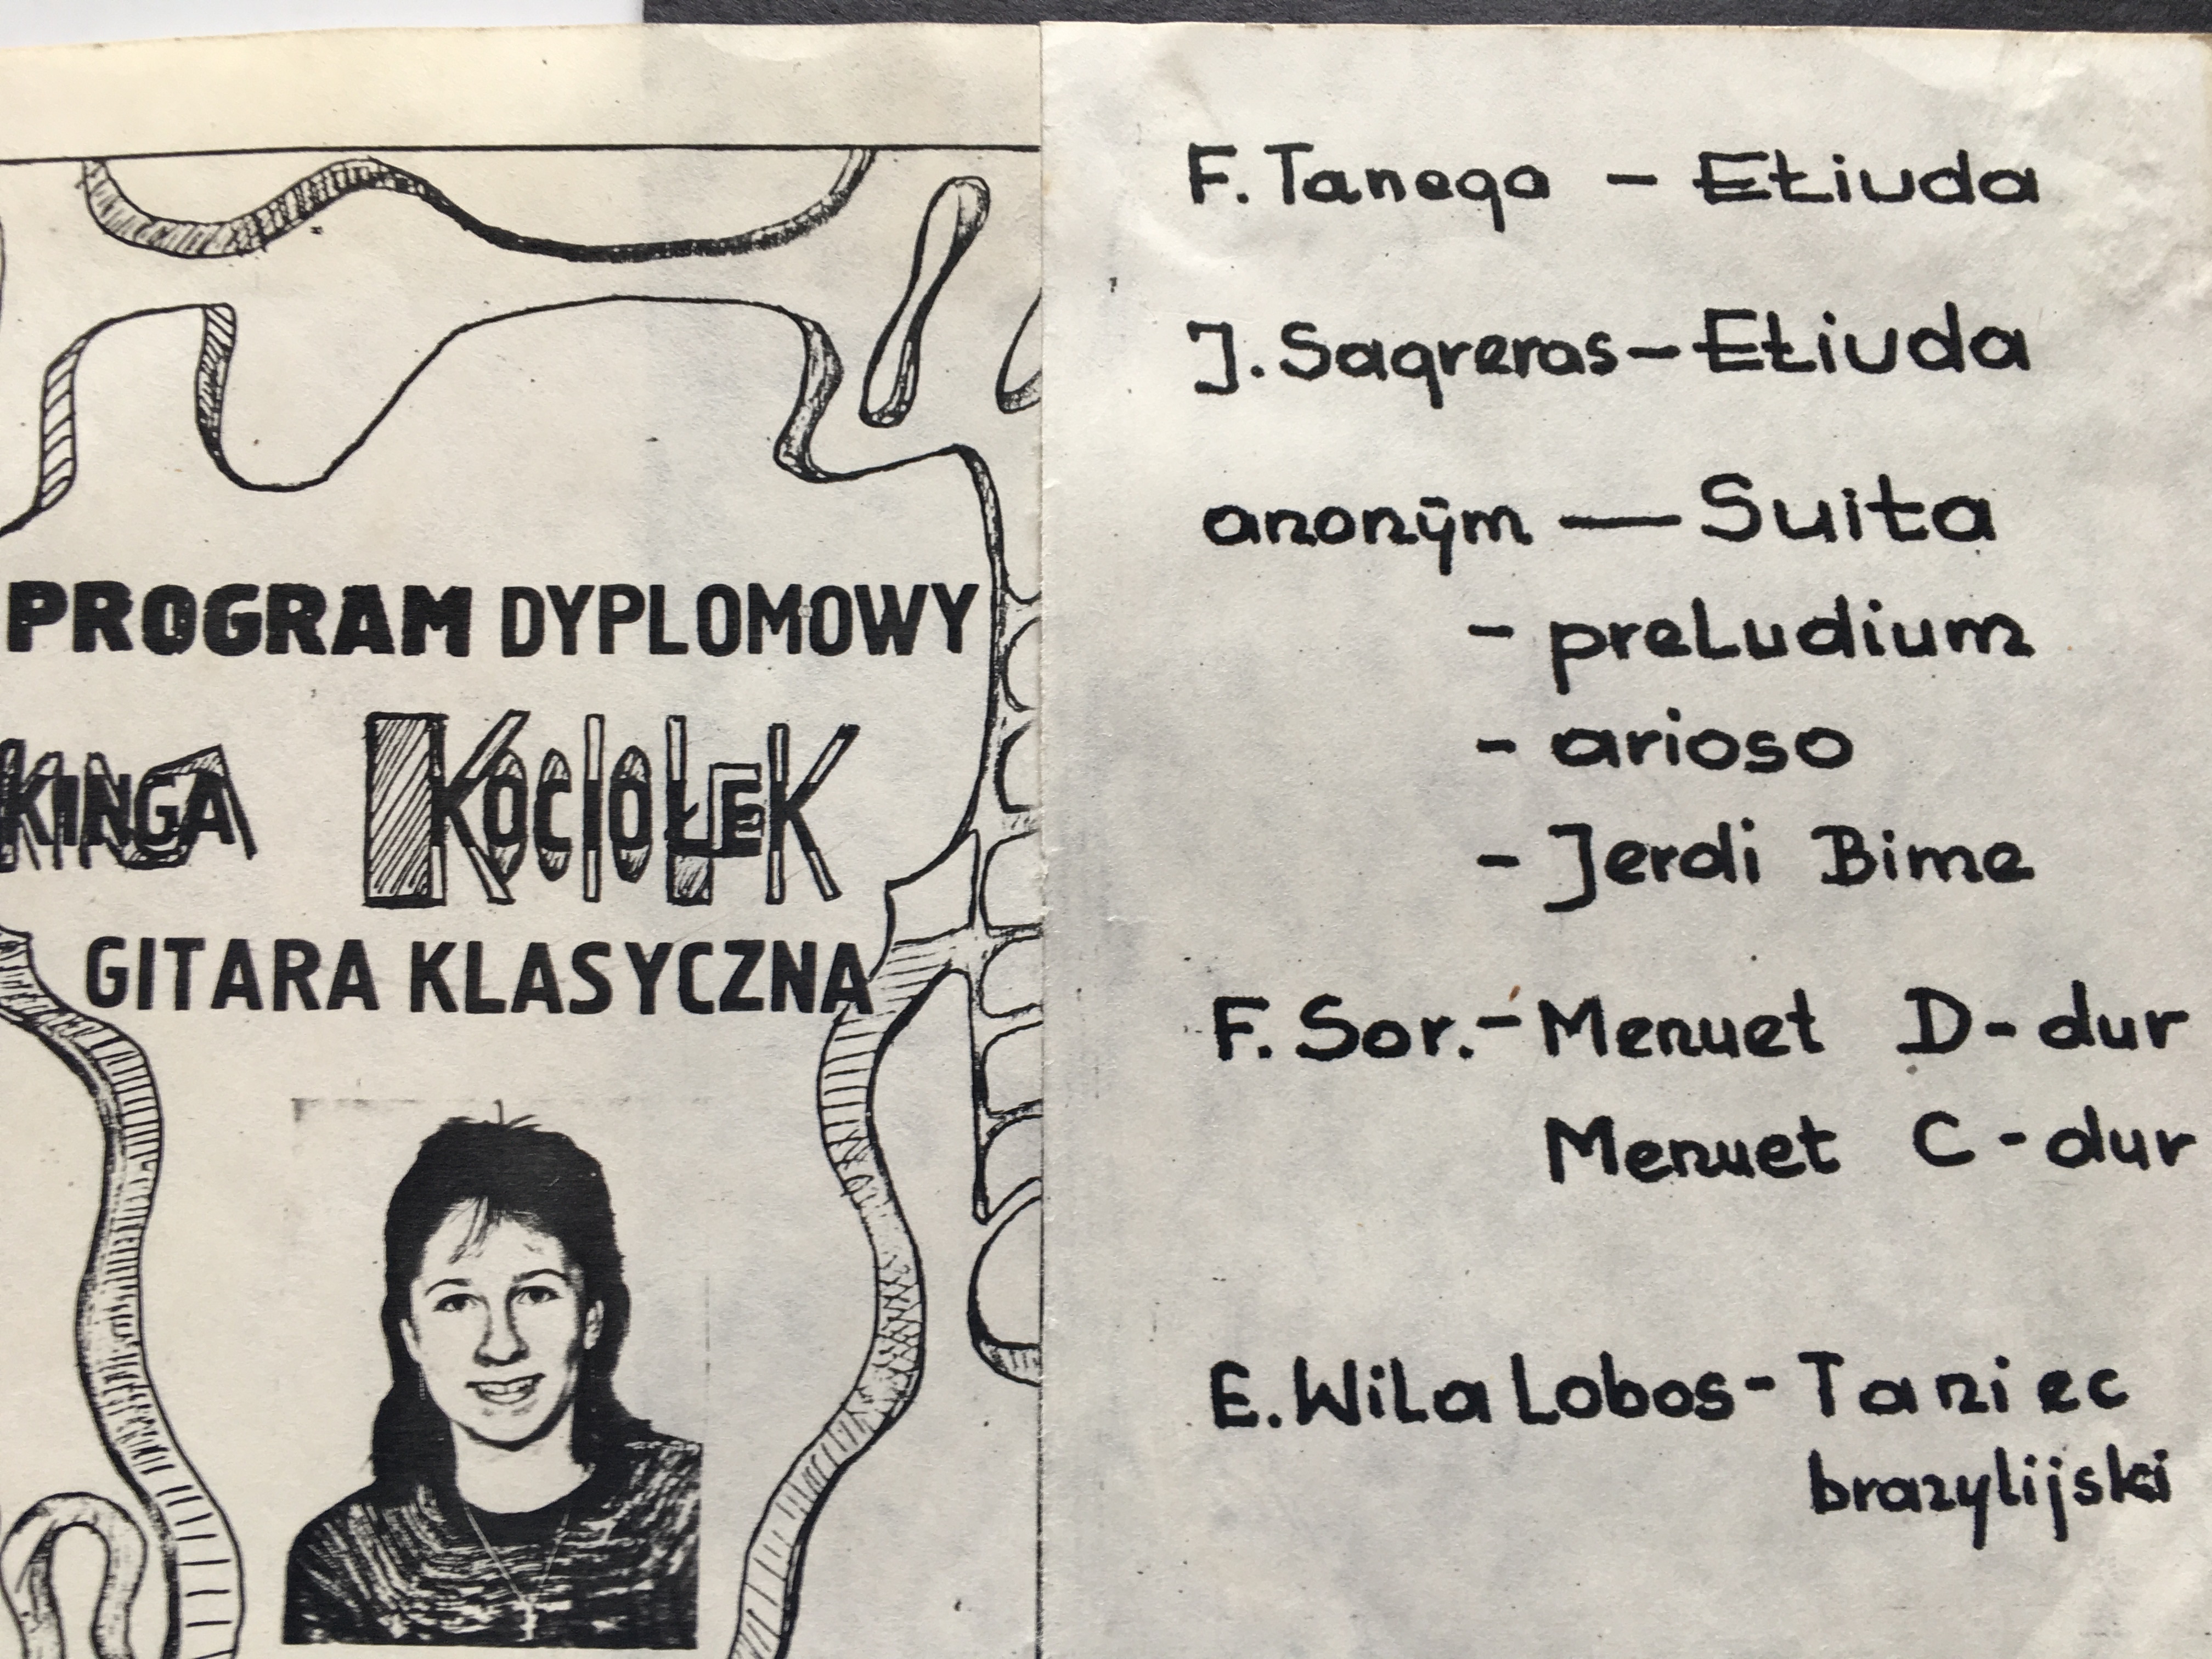 PROGRAM DYPLOMOWY
KINGA KOCIOŁEK
GITARA KLASYCZNA
F. Tanega - Etiuda
J. Sagreras - Etiuda
anonym — Suita
- preludium
- arioso
- Jerdi Bime
F. Sor. - Menuet D-dur
Menuet C-dur
E. Wila Lobos - Taniec
brazylijski